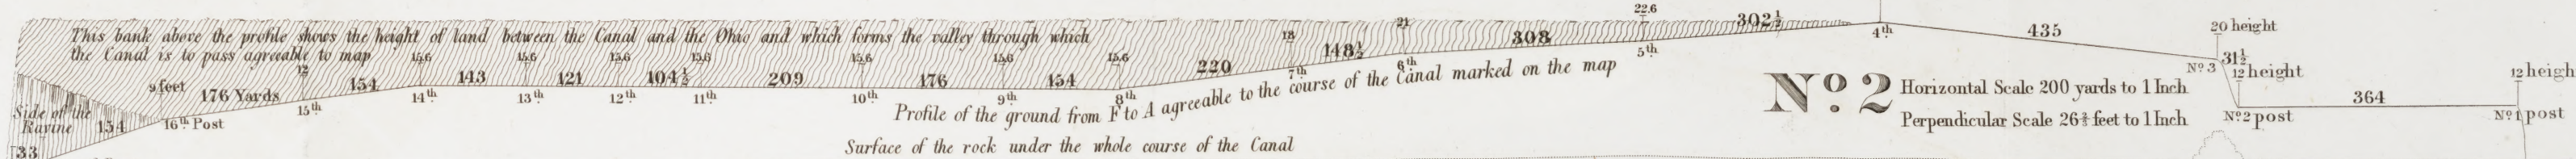 This bank above the profile shows the height of land between the Canal and the Ohio and which forms the valley through which
the Canal is to pass agreeable to map
Side of the
Ravine
133
154
9 feet
16th Post
176 Yards
12
15th
154
15.6
14th
143
15.6
13th
121
15.6
12th
104½
15.6
11th
209
15.6
10th
176
15.6
9th
154
15.6
8th
220
18
7th
148½
21
6th
308
22.6
5th
302½
4th
435
20 height
No. 3
31½
12 height
No. 2 post
364
12 heigh
No. 1 post
Profile of the ground from F to A agreeable to the course of the Canal marked on the map
Surface of the rock under the whole course of the Canal
No. 2
Horizontal Scale 200 yards to 1 Inch
Perpendicular Scale 26⅔ feet to 1 Inch